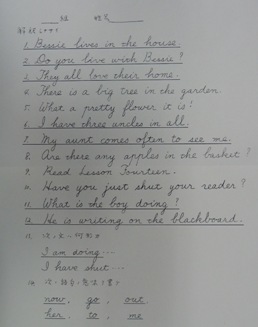 組 姓名
1. Bessie lives in the house.
2. Do you live with Bessie?
3. They all love their home.
4. There is a big tree in the garden.
5. What a pretty flower it is!
6. I have three uncles in all.
7. My aunt comes often to see me.
8. Are there any apples in the basket?
9. Read Lesson Fourteen.
10. Have you just shut your reader?
11. What is the boy doing?
12. He is writing on the blackboard.
I am doing...
I have shut...
now, go, out
her, to, me